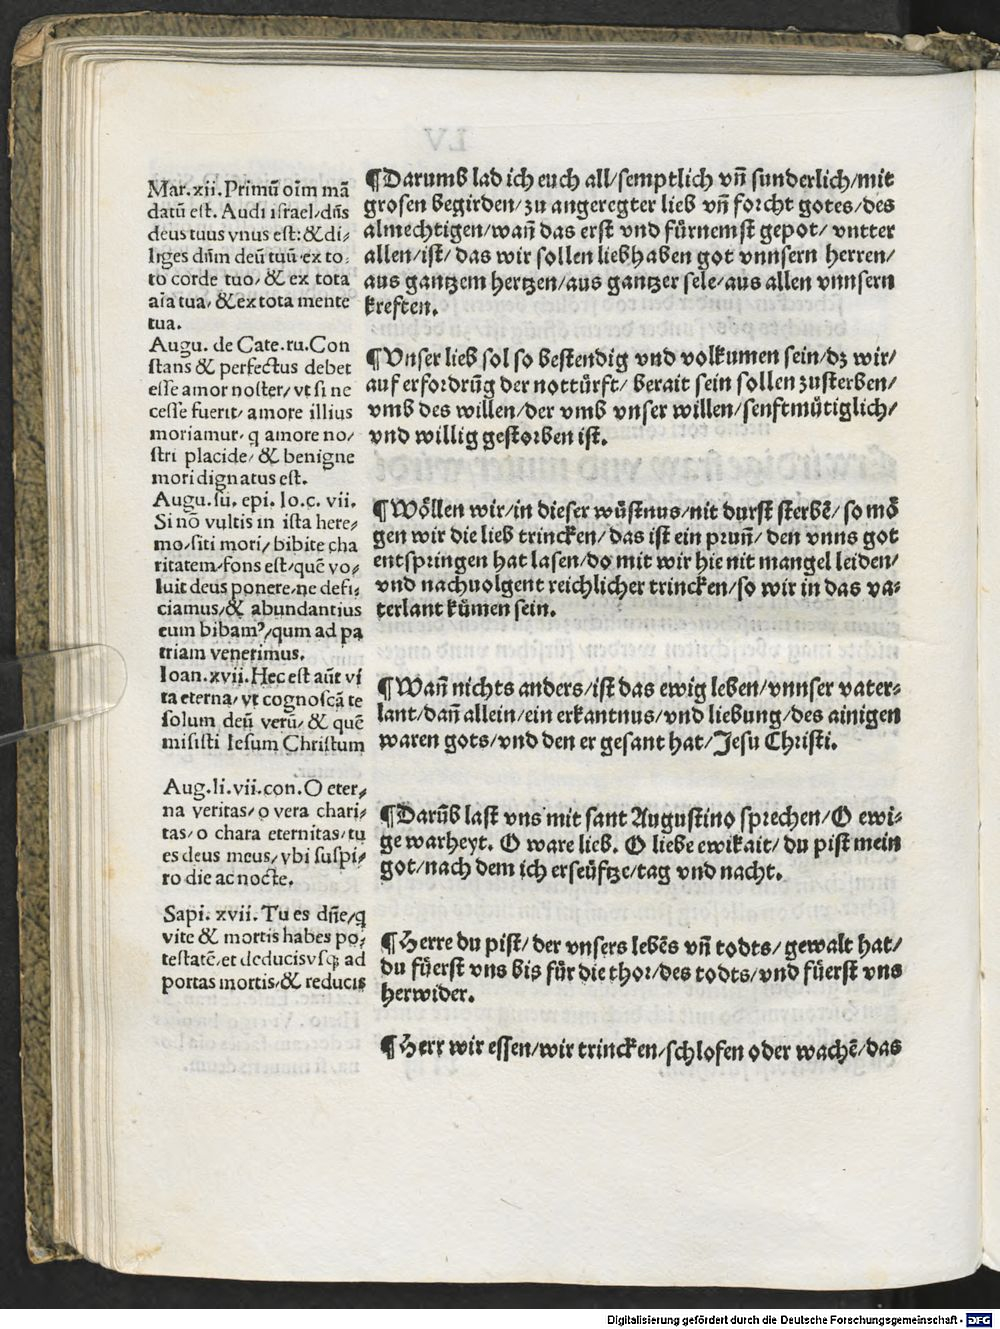 Mar. xii. Primũ oĩm mã
datũ est. Audi israel/dñs
deus tuus vnus est: & di/
liges dñm deũ tuũ ex to/
to corde tuo/ & ex tota
aĩa tua/ & ex tota mente
tua.
Augu. de Cate. ru. Con
stans & perfectus debet
esse amor noster/ vt si ne
cesse fuerit/ amore illius
moriamur/ q amore no/
stri placide/ & benigne
mori dignatus est.
Augu. su. epi. Io. c. vii.
Si nõ vultis in ista here/
mo/siti mori/ bibite cha
ritatem/fons est/quẽ vo/
luit deus ponere/ne defi/
ciamus/& abundantius
eum bibamꝰ/qum ad pa
triam venerimus.
Ioan. xvii. Hec est aũt vi
ta eterna/ vt cognoscã te
solum deũ verũ/ & quẽ
misisti Iesum Christum
Aug. li. vii. con. O eter/
na veritas/ o vera chari/
tas/ o chara eternitas/ tu
es deus meus/ vbi suspi/
ro die ac nocte.
Sapi. xvii. Tu es dñe/q
vite & mortis habes po/
testatẽ/et deducis vsq; ad
portas mortis/& reducis
¶Darumb lad ich euch all/semptlich vñ sunderlich/mit
grosen begirden/zu angeregter lieb vñ forcht gotes/des
almechtigen/wañ das erst vnd fürnemst gepot/ vntter
allen/ist/das wir sollen liebhaben got vnnsern herren/
aus gantzem hertzen/aus gantzer sele/aus allen vnnsern
kreften.
¶Vnser lieb sol so bestendig vnd volkumen sein/dz wir/
auf erfordrũg der nottürft/ berait sein sollen zusterben/
vmb des willen/der vmb vnser willen/senftmütiglich/
vnd willig gestorben ist.
¶Wöllen wir/in dieser wüstnus/nit durst sterbẽ/ so mö
gen wir die lieb trincken/das ist ein pruñ/ den vnns got
entspringen hat lasen/do mit wir hie nit mangel leiden/
vnd nachuolgent reichlicher trincken/so wir in das va-
terlant kümen sein.
¶Wañ nichts anders/ist das ewig leben/vnnser vater-
lant/dañ allein/ein erkantnus/vnd liebung/des ainigen
waren gots/vnd den er gesant hat/Jesu Christi.
¶Darũb last vns mit sant Augustino sprechen/O ewi-
ge warheyt. O ware lieb. O liebe ewikait/ du pist mein
got/nach dem ich erseüftze/tag vnd nacht.
¶Herre du pist/der vnsers lebẽs vñ todts/ gewalt hat/
du füerst vns bis für die thor/des todts/vnd füerst vns
herwider.
¶Herr wir essen/wir trincken/schlofen oder wachẽ/das
Digitalisierung gefördert durch die Deutsche Forschungsgemeinschaft - DFG